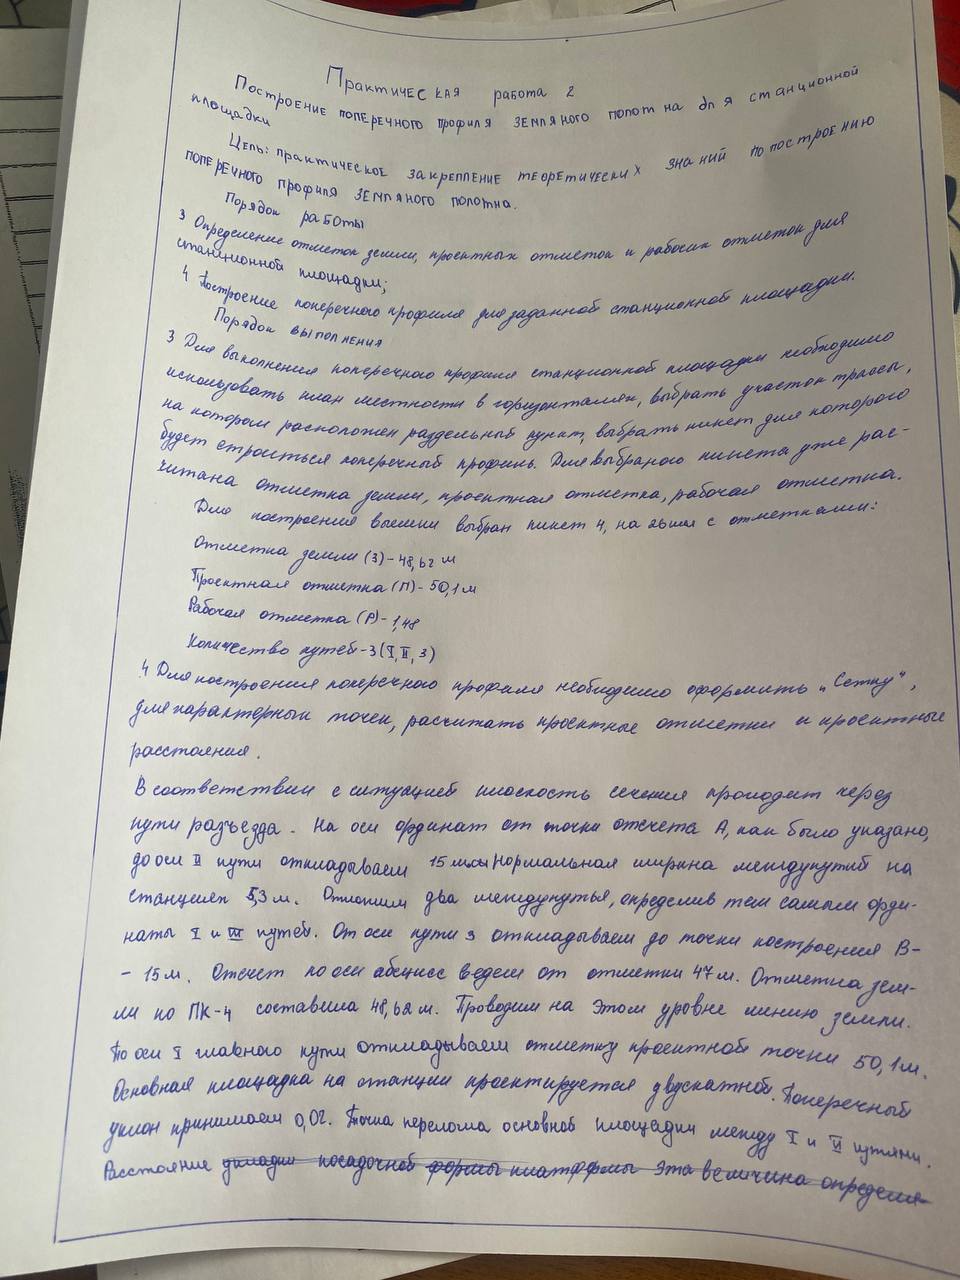 Практическая работа 2
Построение поперечного профиля земляного полотна для станционной
площадки
Цель: практическое закрепление теоретических знаний по построению
поперечного профиля земляного полотна.
Порядок работы
3 Определение отметок земли, проектных отметок и рабочих отметок для
станционной площадки;
4 Построение поперечного профиля для заданной станционной площадки.
Порядок выполнения
3 Для выполнения поперечного профиля станционной площадки необходимо
использовать план местности в горизонталях, выбрать участок трассы,
на котором расположен раздельный пункт, выбрать пикет для которого
будет строиться поперечный профиль. Для выбраного пикета уже рас-
читана отметка земли, проектная отметка, рабочая отметка.
Для построения выемки выбран пикет 4, на 26км с отметками:
Отметка земли (З)-48,62 м
Проектная отметка (П)-50,1м
Рабочая отметка (Р)-1,48
Количество путей-3(I, II, 3)
4 Для построения поперечного профиля необходимо оформить „Сетку",
для характерных точек, расчитать проектные отметки и проектные
расстояния.
В соответствии с ситуацией плоскость сечения проходит через
пути разъезда. На оси ординат от точки отсчета А, как было указано,
до оси II пути откладываем 15 Нормальная ширина междупутий на
станциях 5,3 м. Отложим два междупутья, определив тем самым орди-
наты I и III путей. От оси пути 3 откладываем до точки построения В-
- 15 м. Отсчет по оси абсцисс ведем от отметки 47 м. Отметка зем-
ли по ПК-4 составила 48,62 м. Проводим на этом уровне линию земли.
По оси I главного пути откладываем отметку проектной точки 50,1м.
Основная площадка на станции проектируется двускатной. Поперечный
уклон принимаем 0,02. Точка перелома основной площадки между I и II путями.
Расстояние укладки посадочной формы платформы эта величина определя